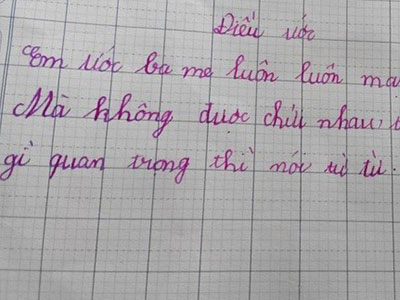 Điều ước
Em ước ba mẹ luôn luôn mạ
Mà không được chửi nhau,
gì quan trọng thì nói từ từ.